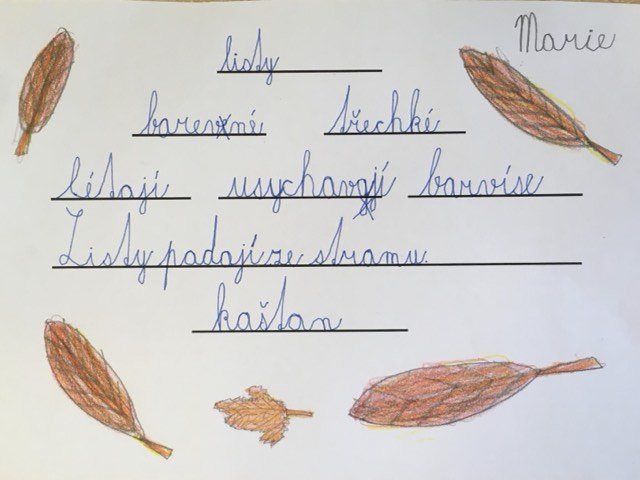 Marie
listy
barevné třechké
létají usychají barvíse
Listy padají ze stramu.
kaštan